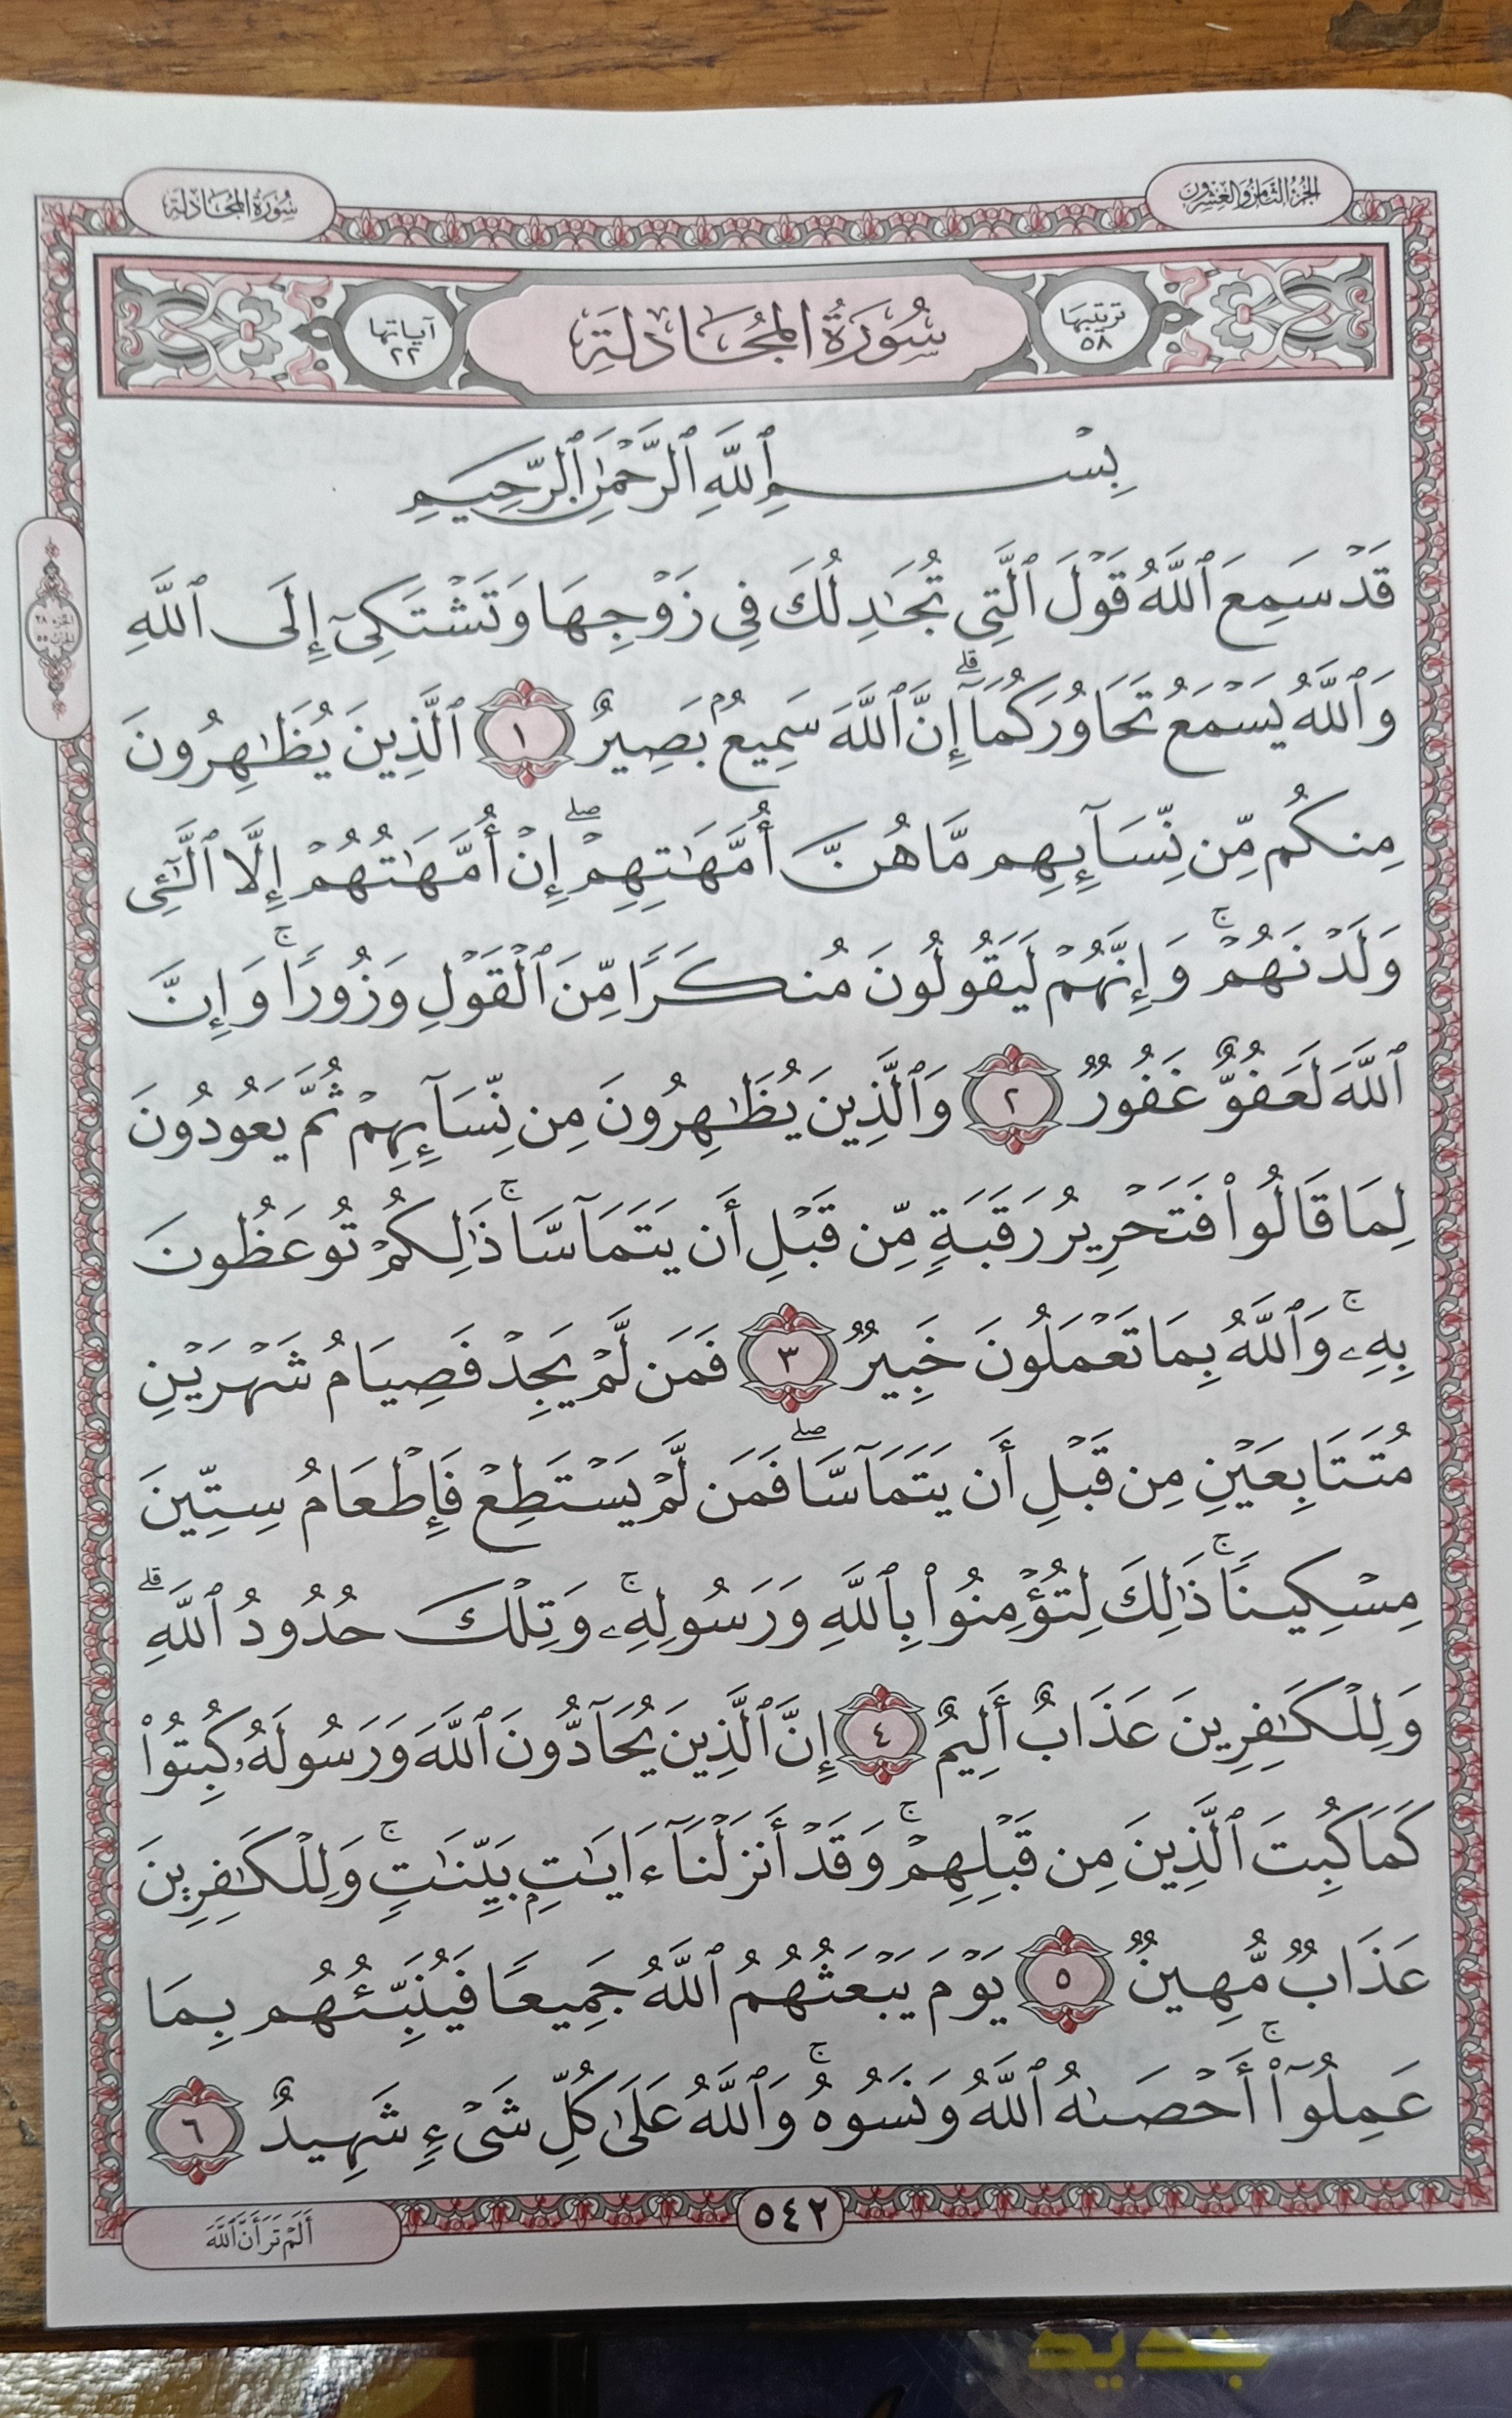 الجزء الثامن والعشرون
سورة المجادلة
ترتيبها ٥٨
سُورَةُ المُجَادلَةِ
آياتها ٢٢
بِسْمِ ٱللَّهِ ٱلرَّحْمَٰنِ ٱلرَّحِيمِ
قَدْ سَمِعَ ٱللَّهُ قَوْلَ ٱلَّتِي تُجَٰدِلُكَ فِي زَوْجِهَا وَتَشْتَكِيٓ إِلَى ٱللَّهِ
وَٱللَّهُ يَسْمَعُ تَحَاوُرَكُمَآۚ إِنَّ ٱللَّهَ سَمِيعُۢ بَصِيرٌ ١ ٱلَّذِينَ يُظَٰهِرُونَ
مِنكُم مِّن نِّسَآئِهِم مَّا هُنَّ أُمَّهَٰتِهِمْۖ إِنْ أُمَّهَٰتُهُمْ إِلَّا ٱلَّٰٓـِٔي
وَلَدْنَهُمْۚ وَإِنَّهُمْ لَيَقُولُونَ مُنكَرًا مِّنَ ٱلْقَوْلِ وَزُورًاۚ وَإِنَّ
ٱللَّهَ لَعَفُوٌّ غَفُورٌ ٢ وَٱلَّذِينَ يُظَٰهِرُونَ مِن نِّسَآئِهِمْ ثُمَّ يَعُودُونَ
لِمَا قَالُوا۟ فَتَحْرِيرُ رَقَبَةٍ مِّن قَبْلِ أَن يَتَمَآسَّاۚ ذَٰلِكُمْ تُوعَظُونَ
بِهِۦۚ وَٱللَّهُ بِمَا تَعْمَلُونَ خَبِيرٌ ٣ فَمَن لَّمْ يَجِدْ فَصِيَامُ شَهْرَيْنِ
مُتَتَابِعَيْنِ مِن قَبْلِ أَن يَتَمَآسَّاۖ فَمَن لَّمْ يَسْتَطِعْ فَإِطْعَامُ سِتِّينَ
مِسْكِينًاۚ ذَٰلِكَ لِتُؤْمِنُوا۟ بِٱللَّهِ وَرَسُولِهِۦۚ وَتِلْكَ حُدُودُ ٱللَّهِۗ
وَلِلْكَٰفِرِينَ عَذَابٌ أَلِيمٌ ٤ إِنَّ ٱلَّذِينَ يُحَآدُّونَ ٱللَّهَ وَرَسُولَهُۥ كُبِتُوا۟
كَمَا كُبِتَ ٱلَّذِينَ مِن قَبْلِهِمْۚ وَقَدْ أَنزَلْنَآ ءَايَٰتِۭ بَيِّنَٰتٍۚ وَلِلْكَٰفِرِينَ
عَذَابٌ مُّهِينٌ ٥ يَوْمَ يَبْعَثُهُمُ ٱللَّهُ جَمِيعًا فَيُنَبِّئُهُم بِمَا
عَمِلُوٓا۟ۚ أَحْصَىٰهُ ٱللَّهُ وَنَسُوهُۚ وَٱللَّهُ عَلَىٰ كُلِّ شَيْءٍ شَهِيدٌ ٦
الجزء ٢٨
الحزب ٥٥
٥٤٢
أَلَمْ تَرَ أَنَّ ٱللَّهَ